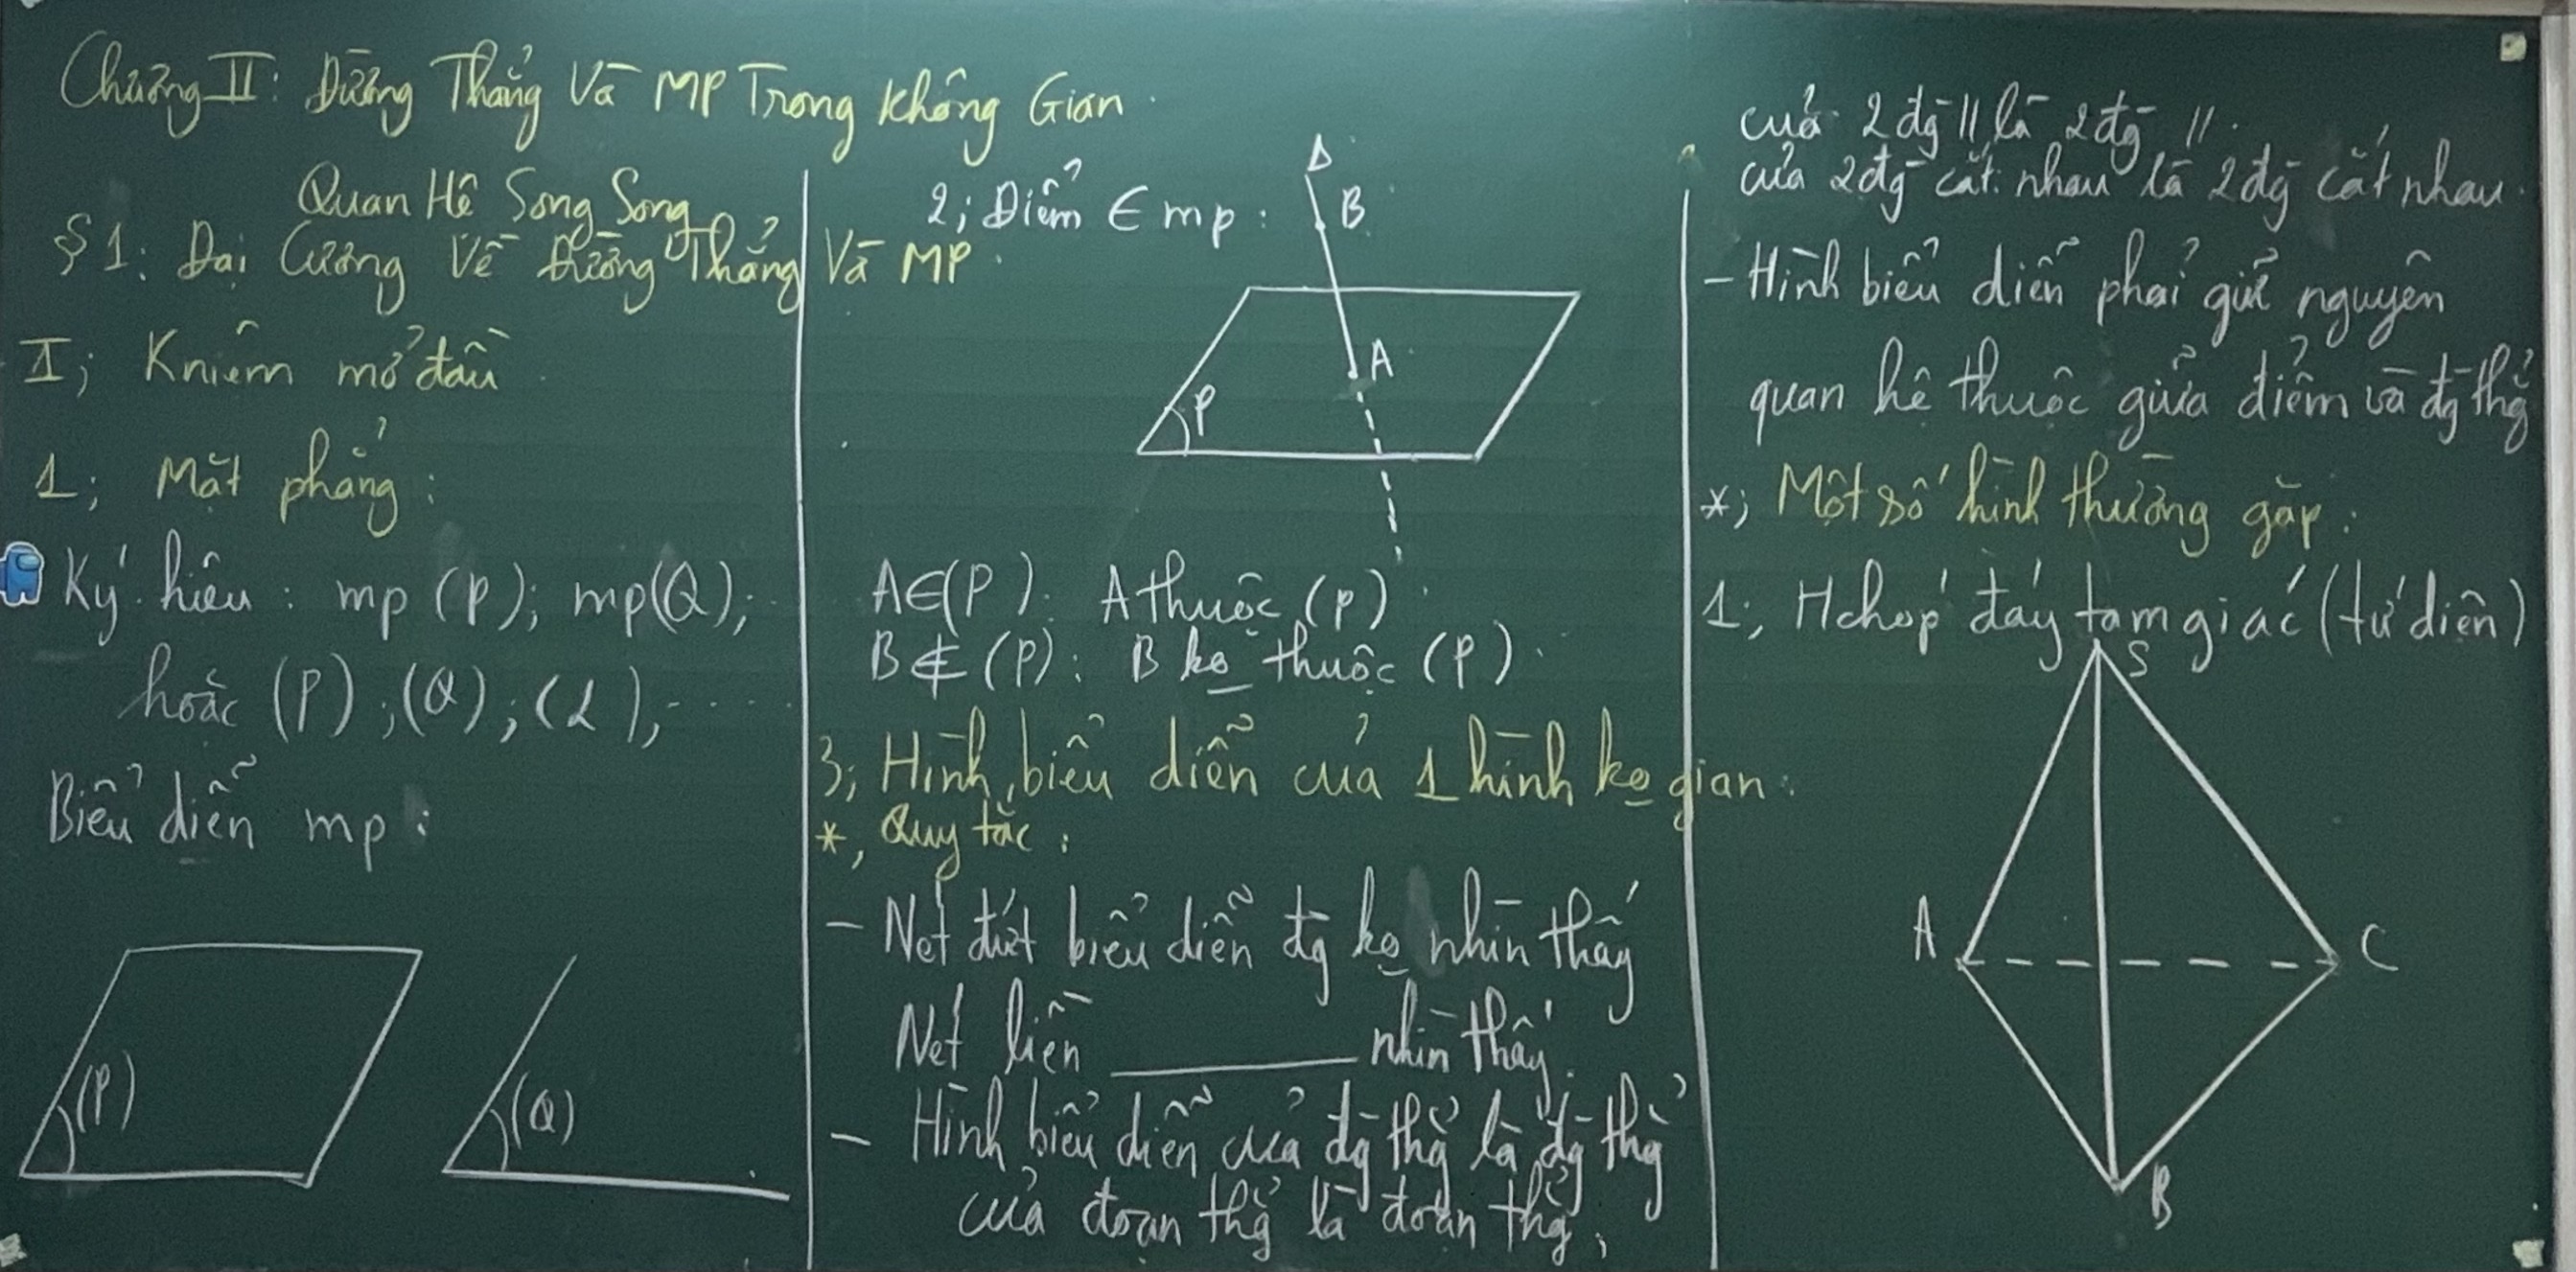 Chương II: Đường Thẳng Và MP Trong Không Gian.
Quan Hệ Song Song
§1: Đại Cương Về Đường Thẳng Và MP.
I; Kniệm mở đầu
1; Mặt phẳng:
Ký hiệu: mp (P); mp(Q);
hoặc (P); (Q); (α); ....
Biểu diễn mp:
(P)
(Q)
2; Điểm ∈ mp:
Δ
B
A
P
A∈(P): A thuộc (P)
B∉(P): B ko thuộc (P).
3; Hình biểu diễn của 1 hình ko gian:
*, Quy tắc:
- Nét đứt biểu diễn đg ko nhìn thấy
Nét liền ______ nhìn thấy.
- Hình biểu diễn của đg thg là đg thg
của đoạn thg là đoạn thg,
của 2 đg // là 2 đg //.
của 2 đg cắt nhau là 2 đg cắt nhau.
- Hình biểu diễn phải giữ nguyên
quan hệ thuộc giữa điểm và đg thg
*; Một số hình thường gặp:
1; Hchóp đáy tam giác (tứ diện)
S
A
C
B